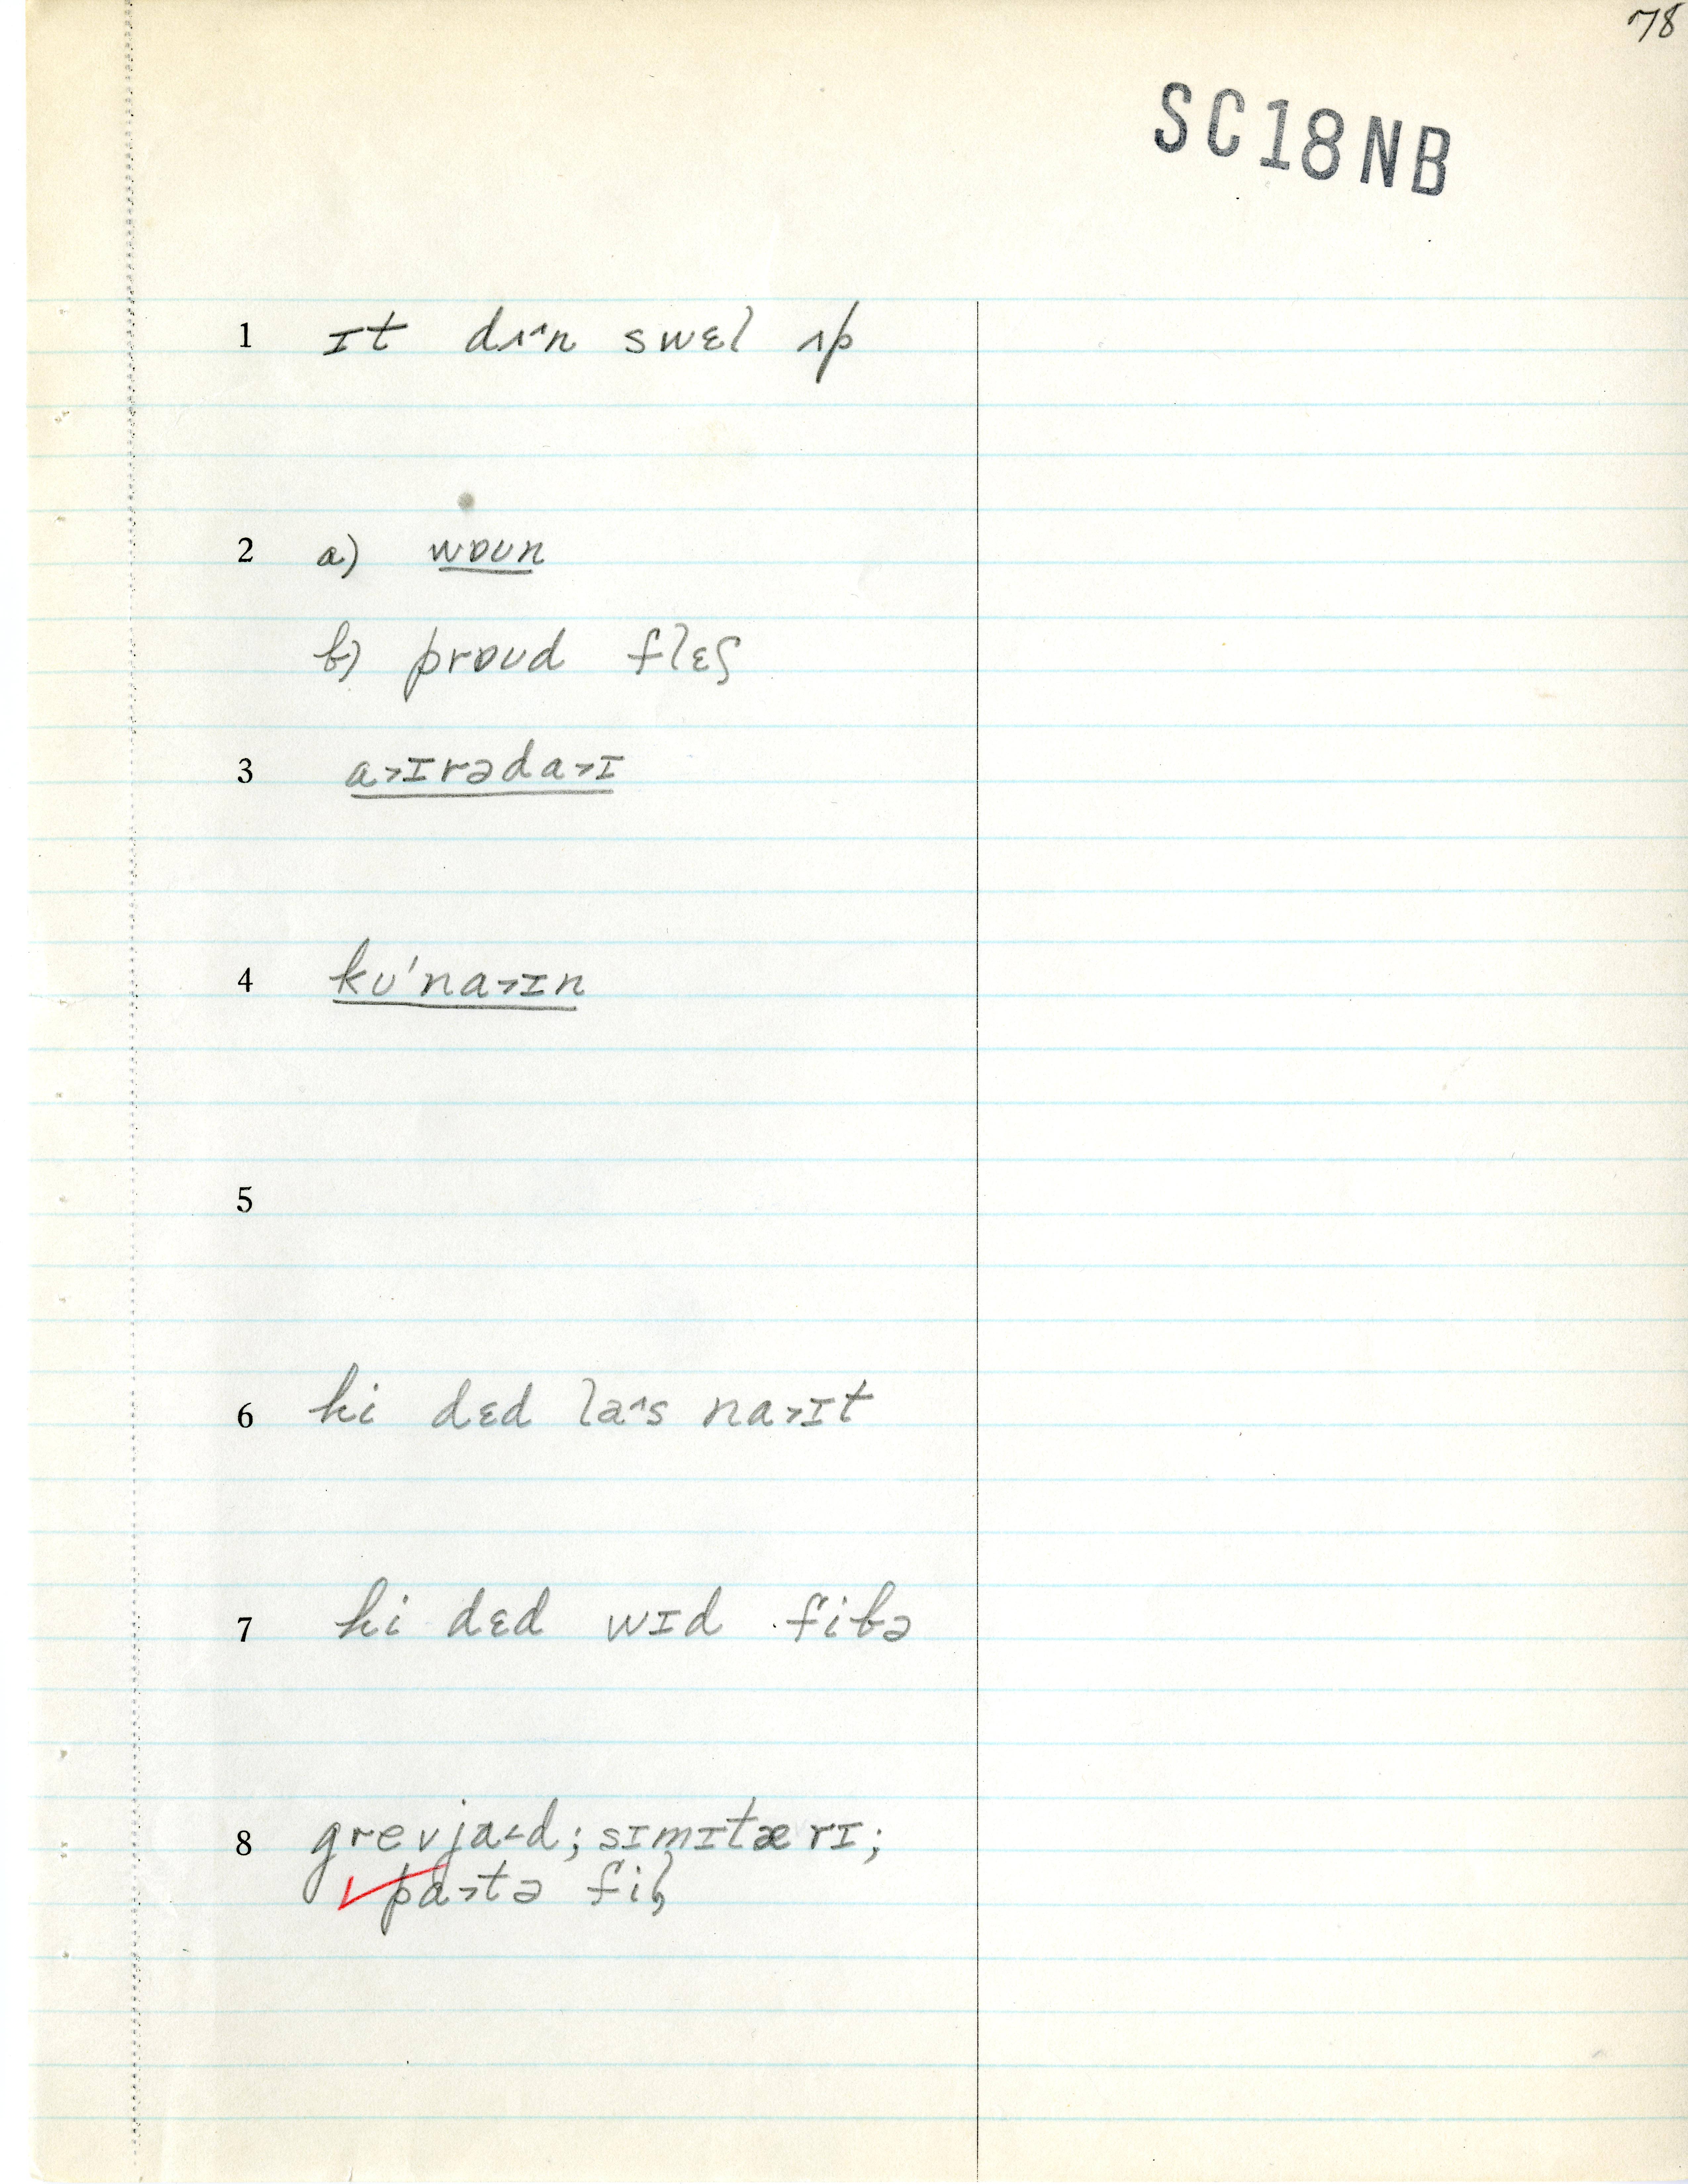 78
SC18NB
1 ɪt dʌ˄n swɛl ʌp
2 a) wɒʊn
b) prɒʊd flɛʃ
3 a˃ɪrəda˃ɪ
4 kʊ'na˃ɪn
5
6 hi dɛd la˄s na˃ɪt
7 hi dɛd wɪd fibə
8 grevja˂d; sɪmɪtærɪ;
pa˃tə fil̥